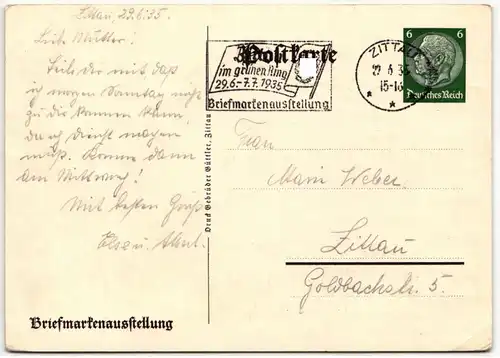 Zittau, 29.6.35.
Liebe Mutter!
Teile dir mit daß
ich morgen Sonntag nicht
zu dir kommen kann,
da ich Dienst machen
muß. Komme dann
am Mittwoch!
Mit besten Gruß
Else u. Albert.
Briefmarkenausstellung
Druck Gebrüder Güttler, Zittau
Postkarte
im grünen Ring
29.6.-7.7.1935
Briefmarkenausstellung
ZITTAU
6 35
15-16
* *
6 6
Deutsches Reich
Frau
Marie Weber
Zittau
Goldbachstr. 5.